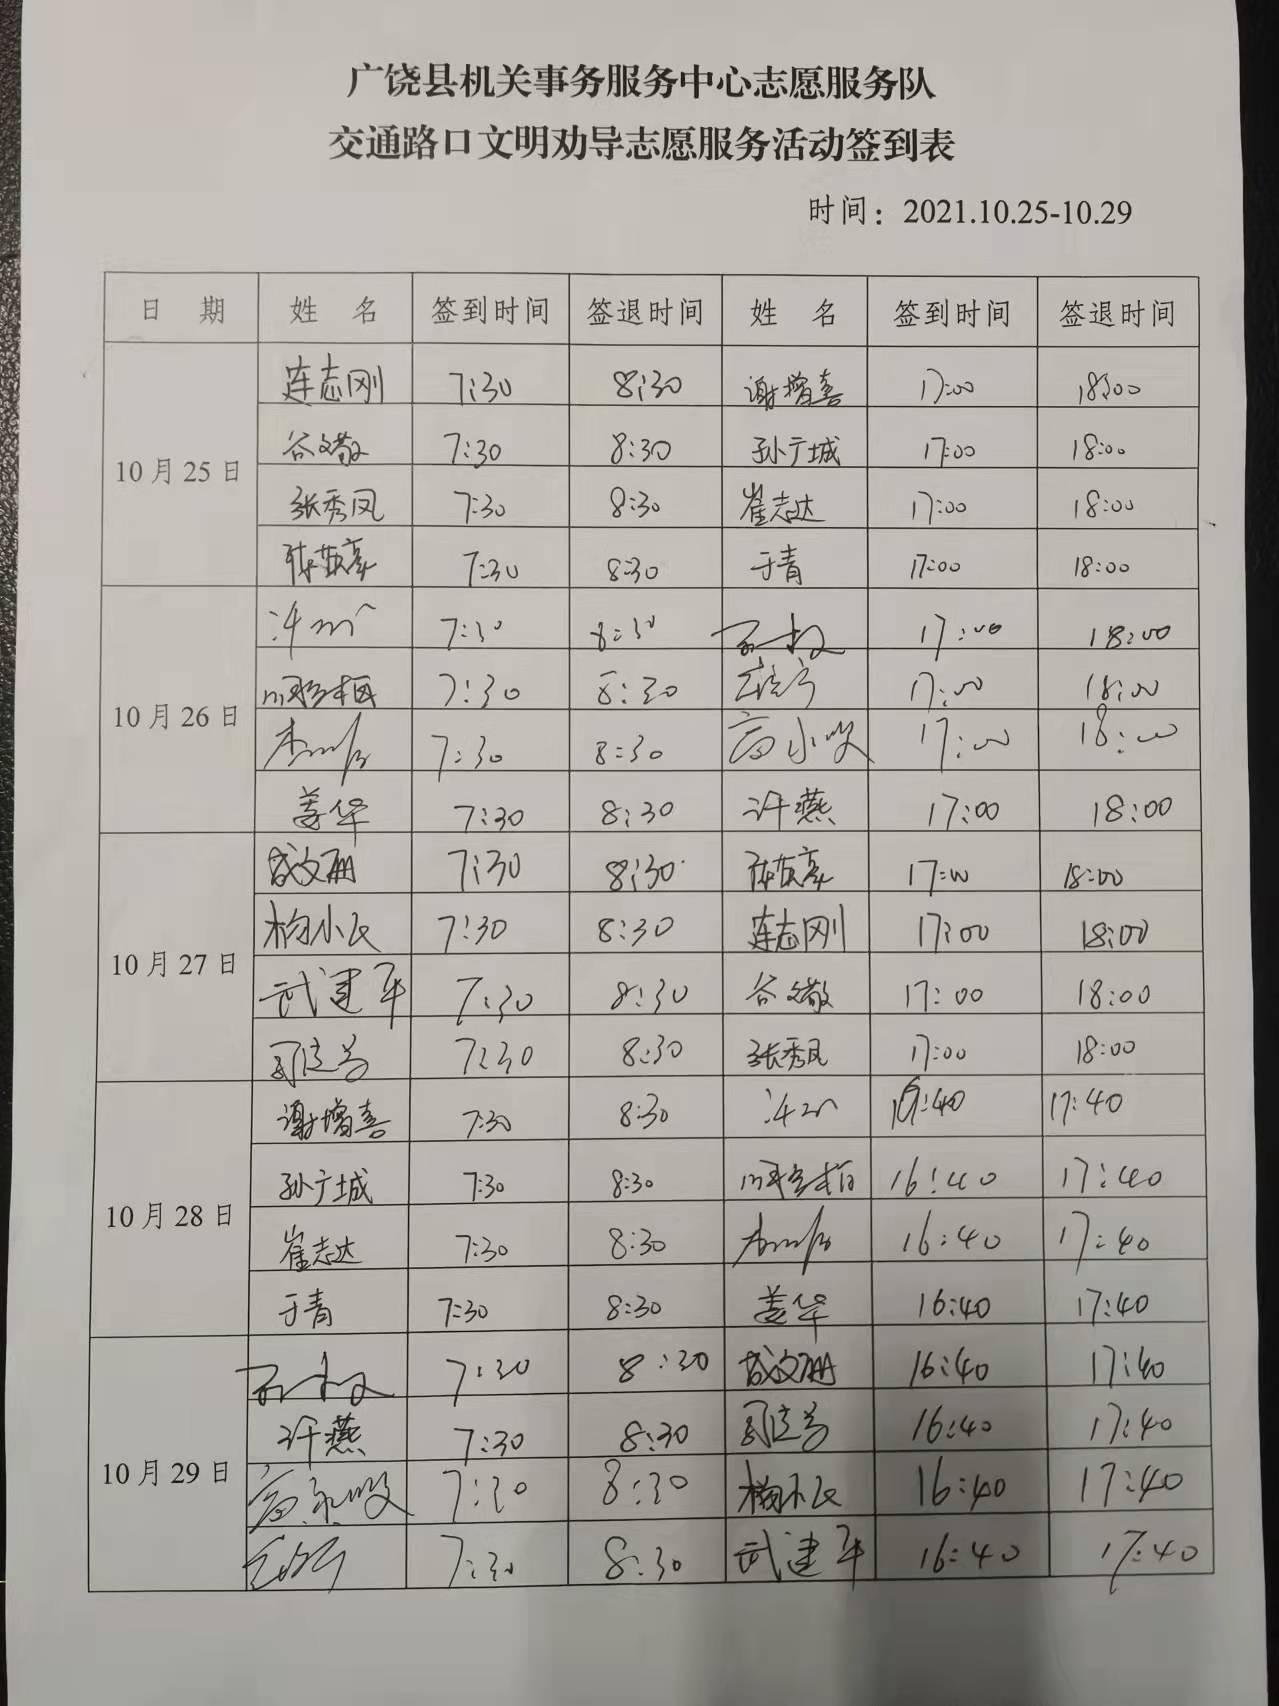 广饶县机关事务服务中心志愿服务队
交通路口文明劝导志愿服务活动签到表
时间：2021.10.25-10.29
日 期 姓 名 签到时间 签退时间 姓 名 签到时间 签退时间
10月25日
连志刚 7:30 8:30 谢增喜 17:00 18:00
谷文敬 7:30 8:30 孙广城 17:00 18:00
张秀凤 7:30 8:30 崔志达 17:00 18:00
7:30 8:30 于青 17:00 18:00
10月26日
7:30 8:30 17:00 18:00
7:30 8:30 17:00 18:00
7:30 8:30 17:00 18:00
姜华 7:30 8:30 许燕 17:00 18:00
10月27日
7:30 8:30 17:00 18:00
7:30 8:30 连志刚 17:00 18:00
武建军 7:30 8:30 谷文敬 17:00 18:00
7:30 8:30 张秀凤 17:00 18:00
10月28日
谢增喜 7:30 8:30 16:40 17:40
孙广城 7:30 8:30 16:40 17:40
崔志达 7:30 8:30 16:40 17:40
于青 7:30 8:30 姜华 16:40 17:40
10月29日
7:30 8:30 16:40 17:40
许燕 7:30 8:30 16:40 17:40
7:30 8:30 16:40 17:40
7:30 8:30 武建军 16:40 17:40